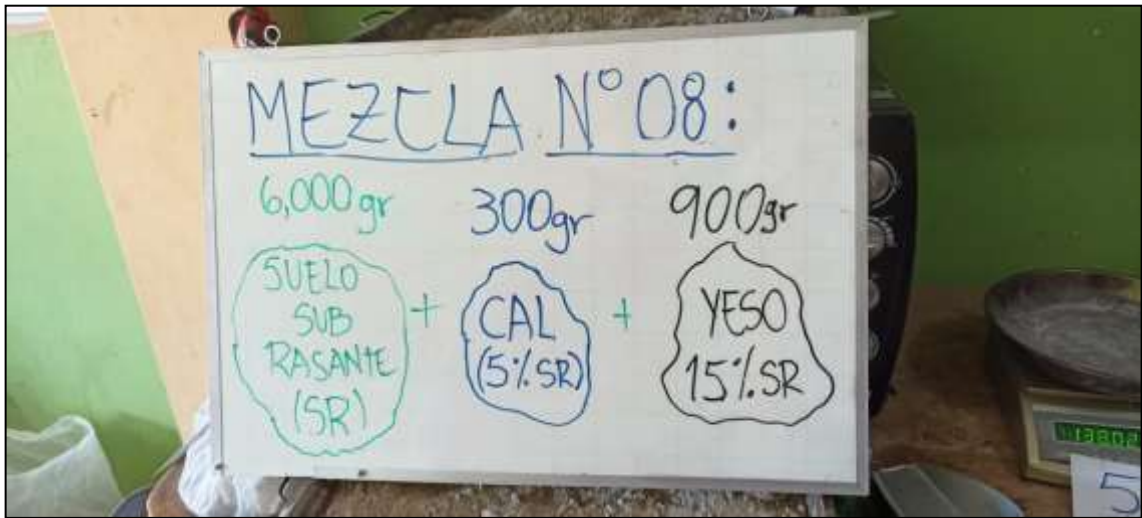 MEZCLA N° 08:
6,000 gr 300gr 900gr
SUELO
SUB
RASANTE
(SR)
+
CAL
(5% SR)
+
YESO
15% SR
5